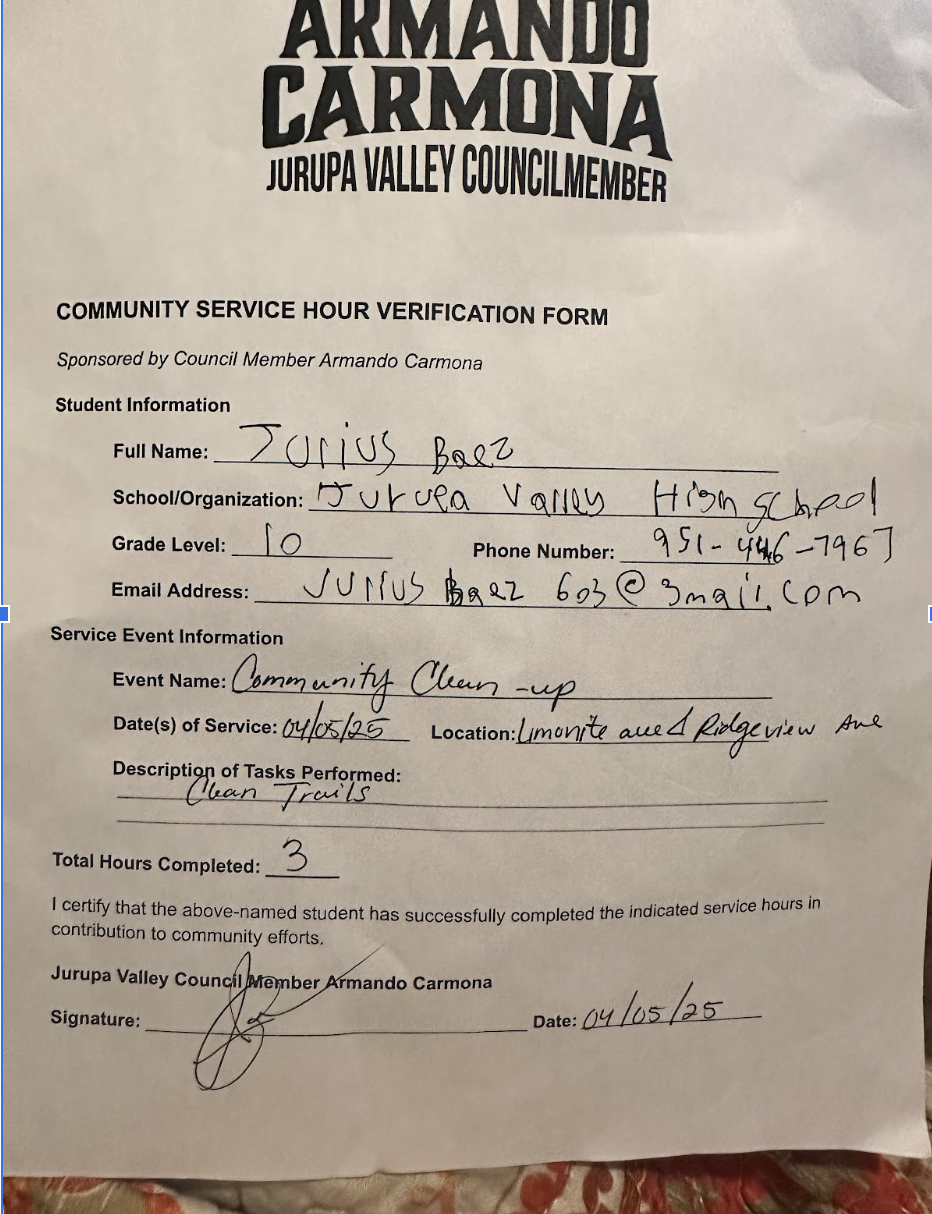 ARMANDO
CARMONA
JURUPA VALLEY COUNCILMEMBER
COMMUNITY SERVICE HOUR VERIFICATION FORM
Sponsored by Council Member Armando Carmona
Student Information
Full Name: Julius Baez
School/Organization: Jurupa Valley High school
Grade Level: 10 Phone Number: 951-446-7967
Email Address: Julius Baez 603@gmail.com
Service Event Information
Event Name: Community Clean-up
Date(s) of Service: 04/05/25 Location: Limonite ave & Ridgeview Ave
Description of Tasks Performed:
Clean Trails
Total Hours Completed: 3
I certify that the above-named student has successfully completed the indicated service hours in
contribution to community efforts.
Jurupa Valley Council Member Armando Carmona
Signature: Date: 04/05/25